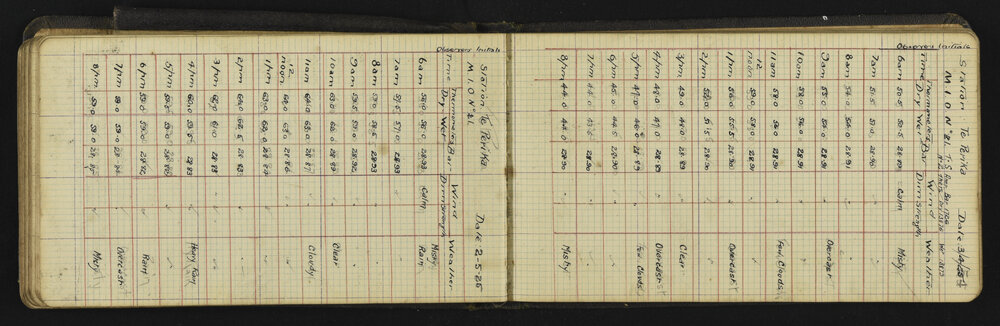 Station To Perika Date
M.I.O Nº 2L
Time Thermometer Bar- Wind Weather
Dry Wet Dirn Strength
Observers Initials
6am 50.5 50.5 28.89 Calm Misty
7am 51.5 51.0 28.90 "
8am 54.0 54.0 28.91 "
9am 55.0 54.0 28.91 " Overcast
10am 58.0 56.0 28.91 "
11am 58.0 56.0 28.91 " Few Clouds
12 noon 58.0 56.0 28.91 "
1pm 56.0 55.5 28.90 " Overcast
2pm 52.0 51.5 28.90 "
3pm 49.0 28.89 " Clear
4pm 49.0 47.0 28.89 " Overcast
5pm 47.0 46.5 28.89 " Few Clouds
6pm 45.0 44.5 28.90 "
7pm 44.0 43.5 28.90 "
8pm 44.0 44.0 28.90 " Misty
Station To Perika Date 2-5-25
M.I.O Nº 2L
Time Thermometer Bar- Wind Weather
Dry Wet Dirn Strength
Observers Initials
6am 56.0 56.0 28.93 Calm Misty Rain
7am 57.5 57.0 28.93 "
8am 59.0 58.5 28.93 "
9am 59.5 59.0 28.92 "
10am 63.0 62.0 28.89 " Clear
11am 64.0 63.0 28.87 " Cloudy
12 noon 64.0 63.0 28.86 "
1pm 63.0 62.0 28.84 "
2pm 64.0 62.5 28.83 "
3pm 61.0 28.83 "
4pm 60.0 59.5 28.83 " Heavy Rain
5pm 59.0 "
6pm 59.0 59.0 28.82 " Rain
7pm 59.0 59.0 28.84 " Overcast
8pm 59.0 59.0 28.85 " Misty